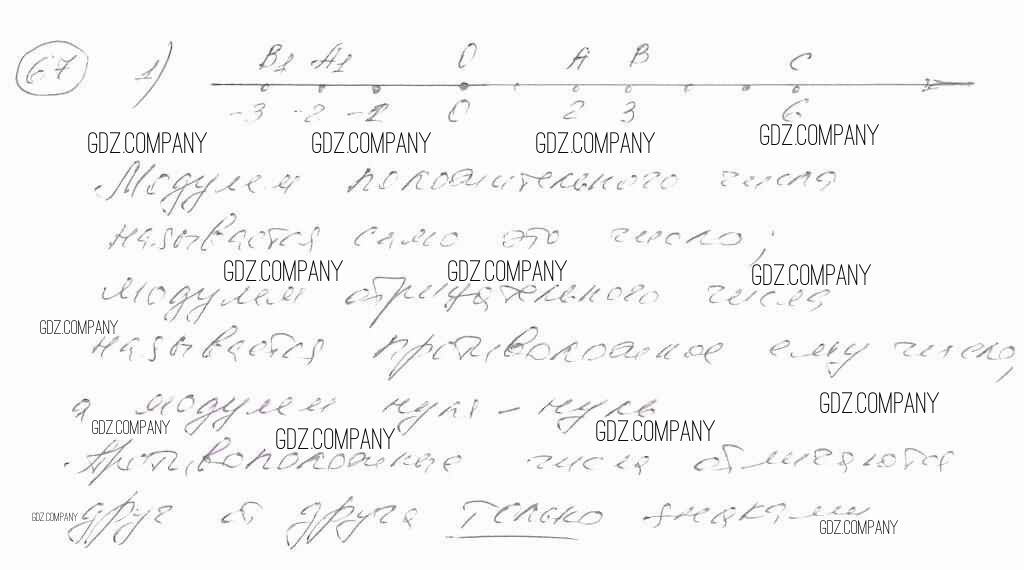 67 1) B1 A1 O A B C
-3 -2 -1 0 2 3 6
GDZ.COMPANY GDZ.COMPANY GDZ.COMPANY GDZ.COMPANY
Модулем положительного числа
называется само это число;
GDZ.COMPANY GDZ.COMPANY GDZ.COMPANY
модулем отрицательного числа
GDZ.COMPANY
называется противоположное ему число,
а модулем нуля - нуль
GDZ.COMPANY GDZ.COMPANY GDZ.COMPANY GDZ.COMPANY
Противоположные числа отличаются
друг от друга только знаками
GDZ.COMPANY GDZ.COMPANY